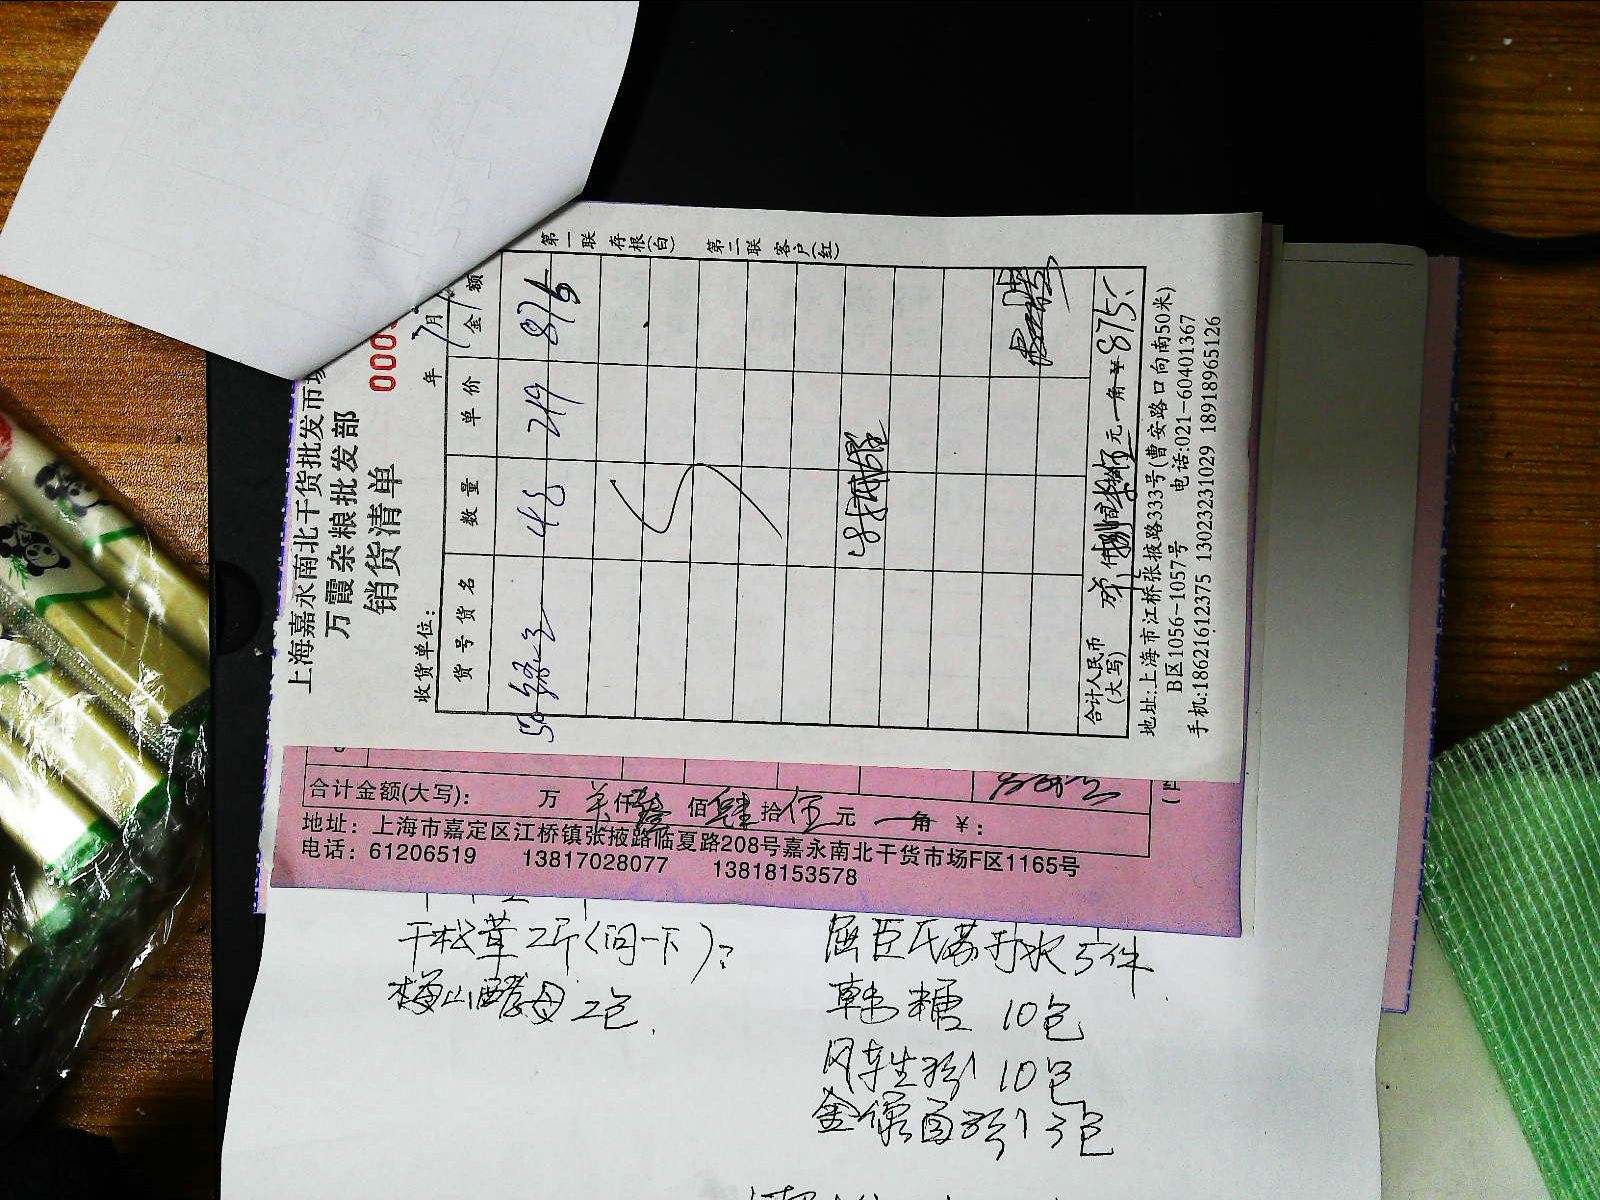 第一联 存根(白) 第二联 客户(红)
上海嘉永南北干货批发市场
万霞杂粮批发部
销货清单
000
收货单位: 年 7月
货号货名 数量 单价 金额
48 219 875
合计人民币(大写) 仟捌佰柒拾伍元一角 ¥875
地址:上海市江桥张掖路333号(曹安路口向南50米)
B区1056-1057号 电话:021-60401367
手机:18621612375 13023231029 18918965126
合计金额(大写): 万 仟 佰肆拾伍元 一角 ¥:
地址：上海市嘉定区江桥镇张掖路临夏路208号嘉永南北干货市场F区1165号
电话：61206519 13817028077 13818153578
干松茸2斤(问一下)?
梅山酵母2包.
屈臣氏苏打水5件
韩糖 10包
风车生粉 10包
金像面粉 3包